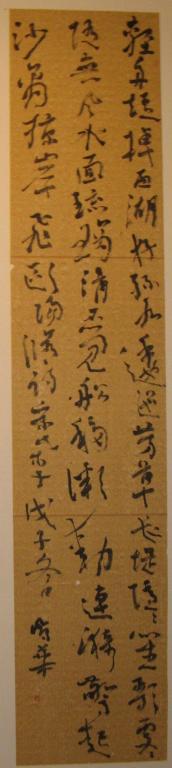 轻舟短棹西湖好绿水逶迤芳草长堤隐隐笙歌处处
随无风水面琉璃滑不觉船移微动涟漪惊起
沙禽掠岸飞欧阳修词采桑子戊子冬日